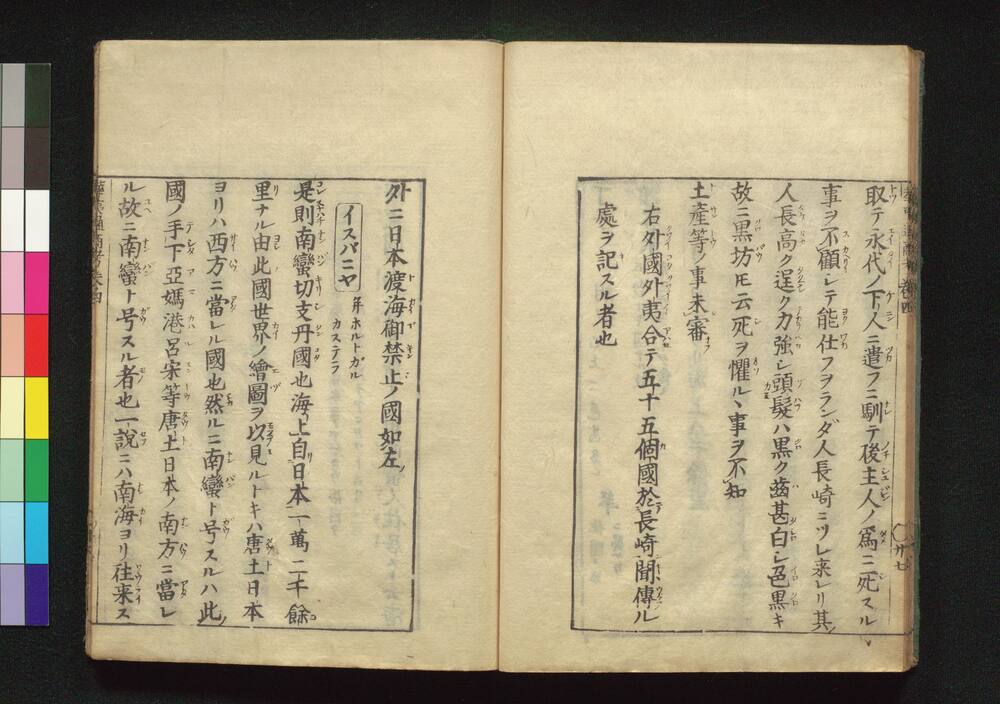 取テ永代ノ下人ニ遣フニ馴テ後主人ノ為ニ死スル
事ヲ不顧シテ能仕フヲランダ人長崎ニツレ来レリ其
人長高ク逞ク力強シ頭髪ハ黒ク齒甚白シ色黒キ
故ニ黒坊トモ云死ヲ懼ルヽ事ヲ不知
土産等ノ事未審
右外國外夷合テ五十五個國於長崎聞傳ル
處ヲ記スル者也
外ニ日本渡海御禁止ノ國如左
イスパニヤ
并ホルトガル
カステラ
是則南蠻切支丹國也海上自日本一萬二千餘
里ナル由此國世界ノ繪圖ヲ以見ルトキハ唐土日本
ヨリハ西方ニ當レル國也然ルニ南蠻ト号スルハ此
國ノ手下亞媽港呂宋等唐土日本ノ南方ニ當レ
ル故ニ南蠻ト号スル者也一說ニハ南海ヨリ往来ス